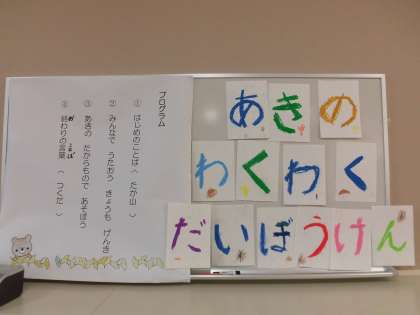 あきの
わくわく
だいぼうけん
プログラム
① はじめのことば （ たか山 ）
② みんなで うたおう きょうも げんき
③ あきの たからもので あそぼう
④ 終わりの言葉 （ つくだ ）